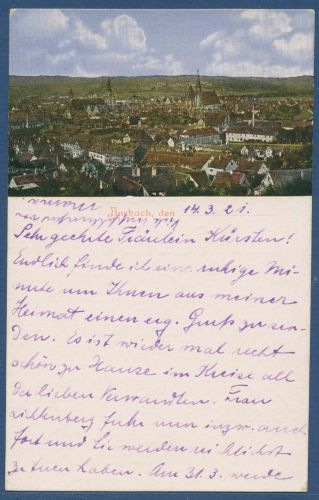 Ansbach, den 14.3.21.
Sehr geehrte Fräulein Kürsten!
Endlich finde ich eine ruhige Mi-
nute um Ihnen aus meiner
Heimat einen erg. Gruß zu sen-
den. Es ist wieder mal recht
schön zu Hause im Kreise all
der lieben Verwandten. Frau
fuhr nun inzw. auch
fort und Sie werden
zu tuen haben. Am 31.3. werde